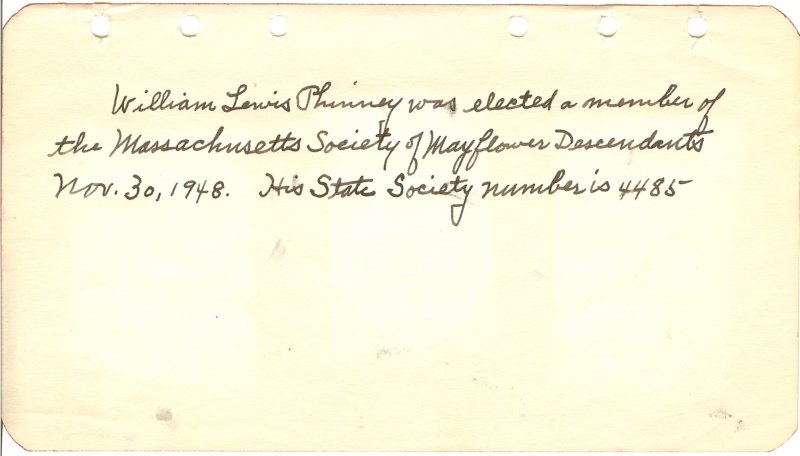 William Lewis Phinney was elected a member of
the Massachusetts Society of Mayflower Descendants
Nov. 30, 1948. His State Society number is 4485